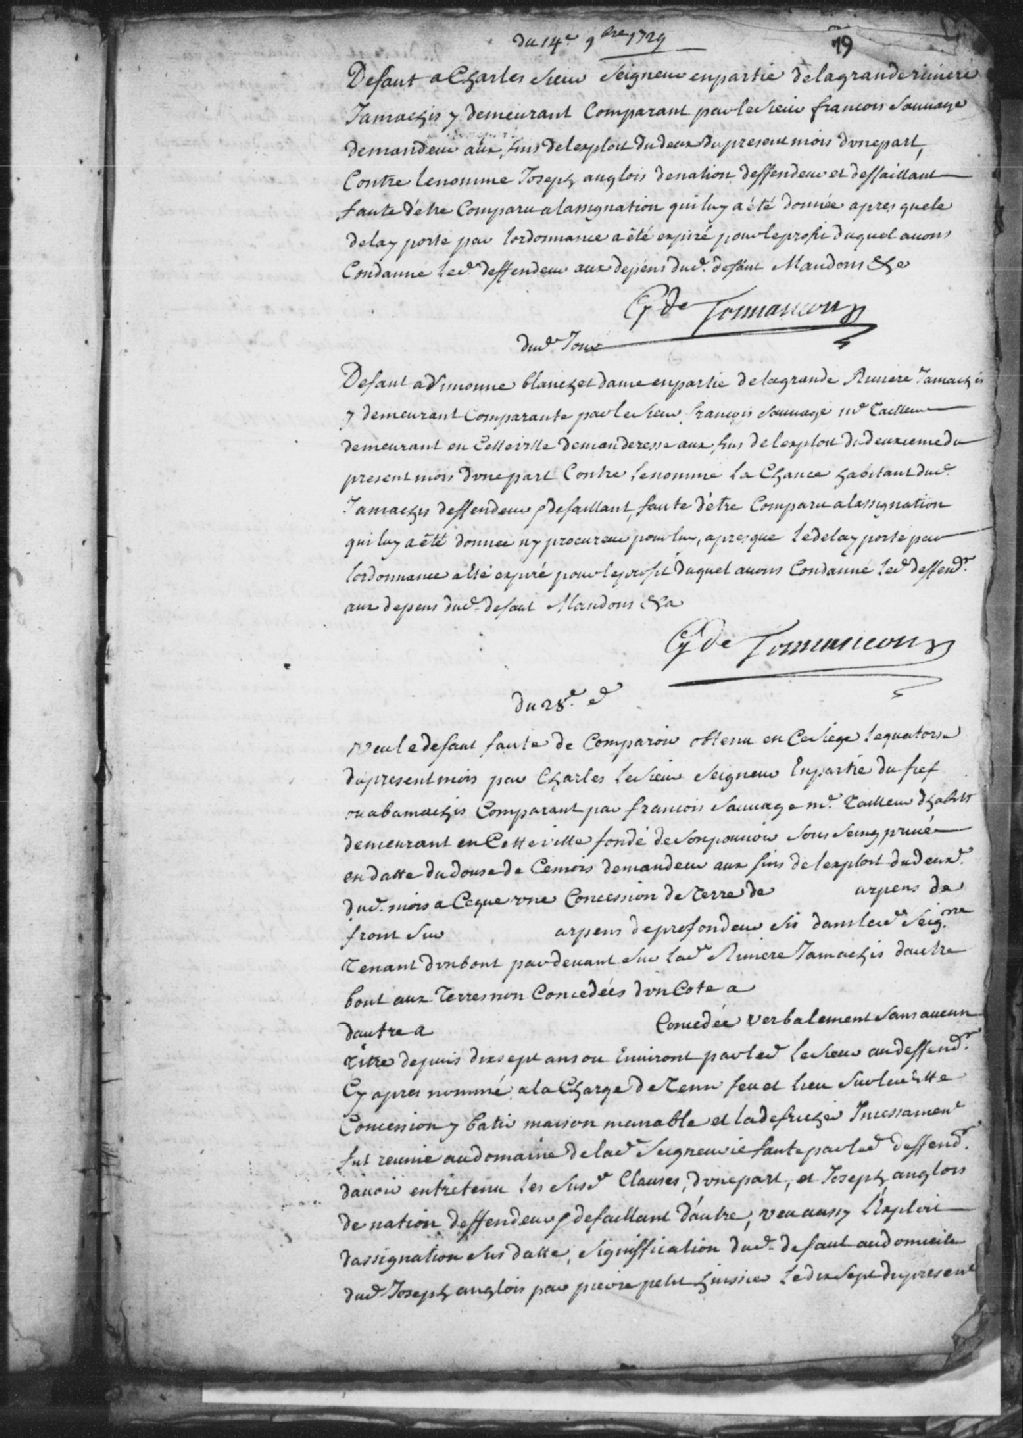 du 14e 9bre 1729
79
Defaut a Charles Lesieur Seigneur en partie de la grande riviere
Jamachis y demeurant Comparant par le sieur francois Sauvage
demandeur aux fins de lexploit du deux du present mois dune part,
Contre le nomme Joseph anglois de nation deffendeur et deffaillant
faute d'etre Comparu a lassignation qui luy a été donnée apres que le
delay porté par lordonnance a été expiré pour le profit duquel avons
Condanné led. deffendeur aux depens dud. defaut Mandons &a
Gd de Tonnancour
dud. Jour
Defaut a Simonne blanchet dame en partie de la grande Riviere Jamachis
y demeurant Comparante par le sieur francois Sauvage me Tailleur
demeurant en Cette ville demanderesse aux fins de lexploit du deuxieme du
present mois dune part Contre le nommé La Chance habitant dud.
Jamachis deffendeur & defaillant, faute d'etre Comparu a lassignation
qui luy a été donnée ny procureur pour luy, apres que le delay porté par
lordonnance a été expiré pour le profit duquel avons Condanné led deffendr.
aux depens dud. defaut Mandons &a
Gd de Tonnancour
du 28e. d
Veu le defaut faute de Comparoir obtenu en Ce siege le quatorze
du present mois par Charles Lesieur Seigneur En partie du fief
ouabamachis Comparant par francois Sauvage me. Tailleur dhabits
demeurant en Cette ville fondé de son pouvoir sous seing privé
en datte du douse de Ce mois demandeur aux fins de lexploit du deux.
dud. mois a Ceque une Concession de Terre de arpens de
front sur arpens de profondeur sis dans lad. Seigrie
Tenant dun bout par devant sur lad. Riviere Jamachis dautre
bout aux Terres non Concedées d'un Coté a
dautre a Concedée verbalement sans aucun
Titre depuis dix sept ans ou Environt par led Lesieur au deffendr.
Cy apres nommé a la Charge de Tenir feu et lieu sur lad.
Concession y batir maison manable et la defricher Incessament
fut reunie au domaine de lad. Seigneurie faute par led. deffendr.
davoir entretenu les susd. Clauses, dune part, et Joseph anglois
de nation deffendeur & defaillant d'autre, veu aussy l'exploit
dassignation sus datté, signiffication dud. defaut au domicile
dud. Joseph anglois par pierre petit huissier le dix sept du present